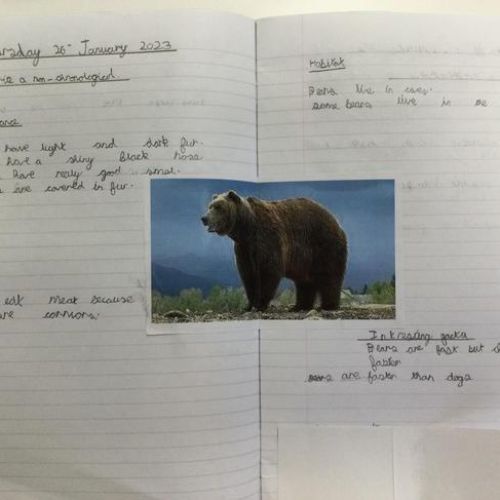 26th January 2023
a non-chronological
have light and dark fur.
have a shiny black nose
have really good smell.
are covered in fur.
eat meat because
are
Habitat
Bears live in caves.
some bears live in
Intresting facts
Bears are fast but
faster
are faster than dogs